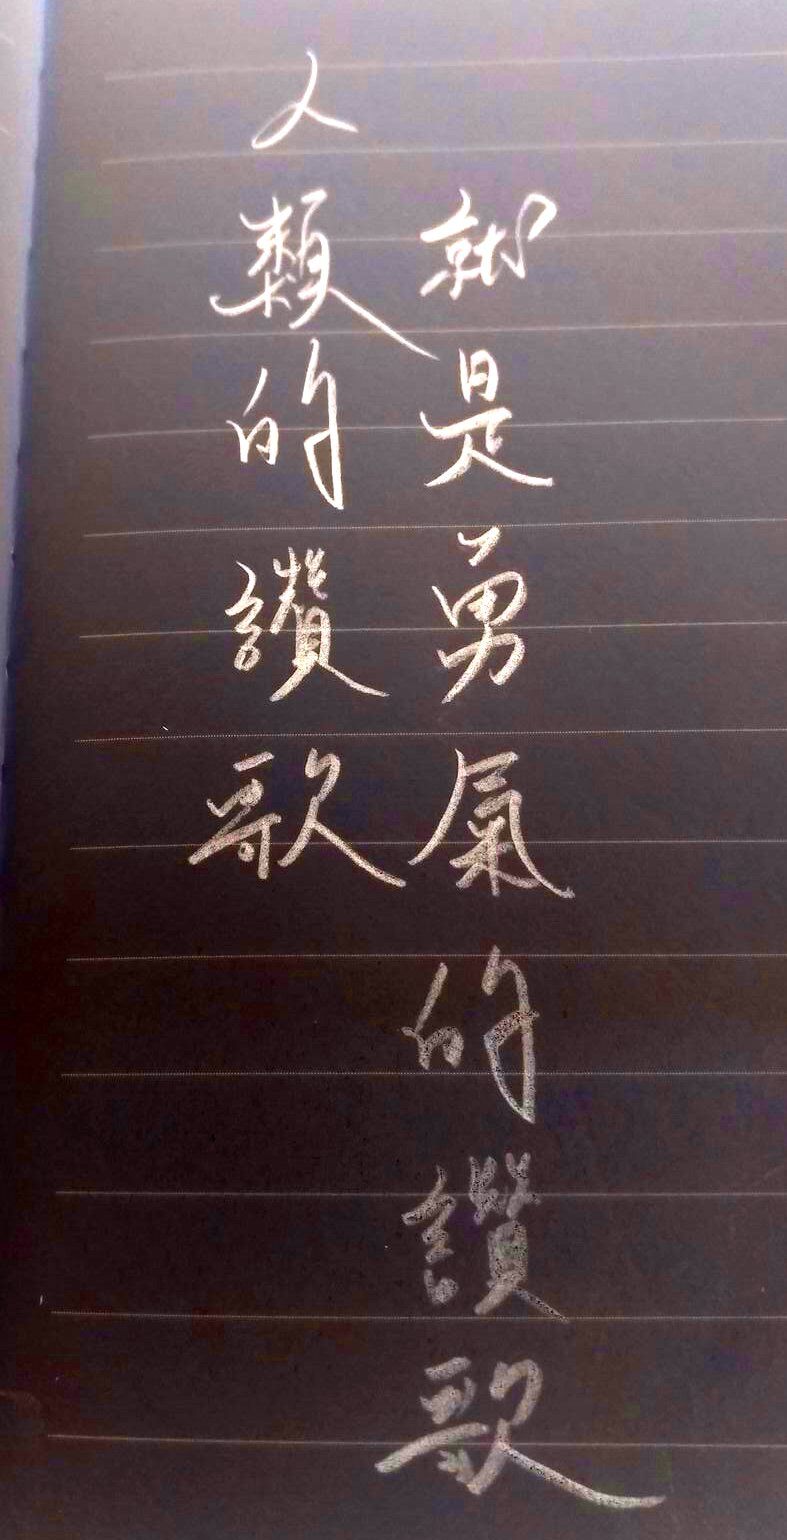 人類的讚歌
就是勇氣的讚歌